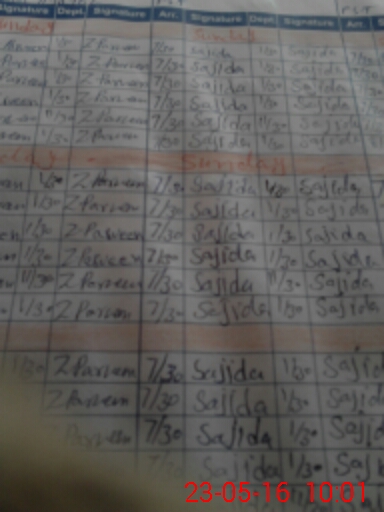 Signature Dept. Signature Arr. Signature Dept. Signature Arr.
Sunday Sunday
1/30 Z Parveen 7/30 Sajida 1/30 Sajida
Parveen 1/30 Z Parveen 7/30 Sajida 1/30 Sajida
Parveen 1/30 Z Parveen 7/30 Sajida 1/30 Sajida
1/30 Z Parveen 7/30 Sajida 1/30 Sajida
1/30 Z Parveen 7/30 Sajida 1/30 Sajida
1/30 Z Parveen 7/30 Sajida 1/30 Sajida
Sunday
1/30 Z Parveen 7/30 Sajida 1/30 Sajida 7
1/30 Z Parveen 7/30 Sajida 1/30 Sajida
1/30 Z Parveen 7/30 Sajida 1/30 Sajida
1/30 Z Parveen 7/30 Sajida 1/30 Sajida
1/30 Z Parveen 7/30 Sajida 1/30 Sajida
1/30 Z Parveen 7/30 Sajida 1/30 Sajida
1/30 Z Parveen 7/30 Sajida 1/30 Sajid
Z Parveen 7/30 Sajida 1/30 Sajid
Parveen 7/30 Sajida 1/30 Sajid
7/30 Sajida 1/30 Saj
23-05-16 10:01